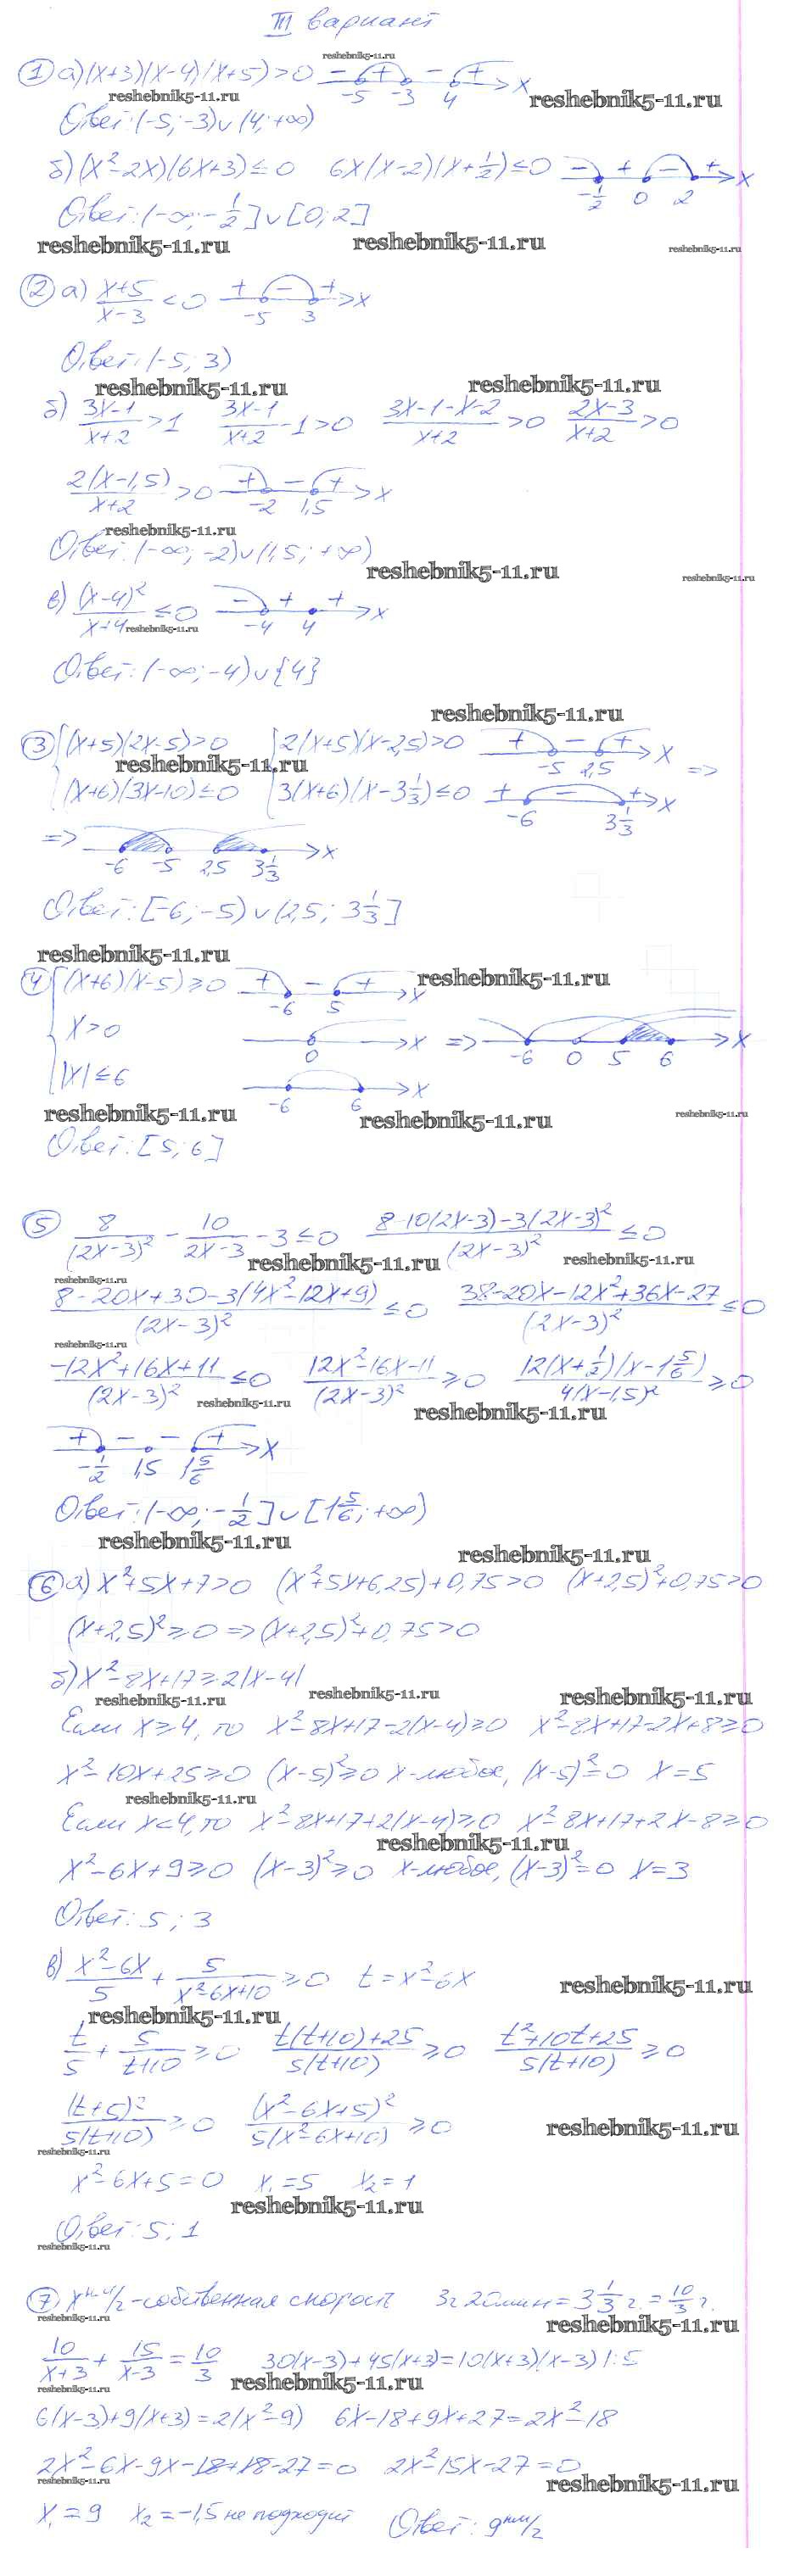 III вариант
reshebnik5-11.ru
① а) (x+3)(x-4)(x+5)>0 - + - + x
-5 -3 4
reshebnik5-11.ru reshebnik5-11.ru
Ответ: (-5; -3)∪(4; +∞)
б) (x²-2x)(6x+3)≤0 6x(x-2)(x+1/2)≤0 - + - + x
-1/2 0 2
Ответ: (-∞; -1/2]∪[0; 2]
reshebnik5-11.ru reshebnik5-11.ru reshebnik5-11.ru
② а) (x+5)/(x-3) <0 + - + x
-5 3
Ответ: (-5; 3)
reshebnik5-11.ru reshebnik5-11.ru
б) (3x-1)/(x+2) >1 (3x-1)/(x+2) -1>0 (3x-1-x-2)/(x+2) >0 (2x-3)/(x+2) >0
2(x-1,5)/(x+2) >0 + - + x
-2 1,5
reshebnik5-11.ru
Ответ: (-∞; -2)∪(1,5; +∞)
reshebnik5-11.ru reshebnik5-11.ru
в) (x-4)²/(x+4) ≤0 - + + x
-4 4
reshebnik5-11.ru
Ответ: (-∞; -4)∪{4}
reshebnik5-11.ru
③ {(x+5)(2x-5)>0 {2(x+5)(x-2,5)>0 + - + x
-5 2,5 =>
reshebnik5-11.ru
(x+6)(3x-10)≤0 3(x+6)(x-3 1/3)≤0 + - + x
-6 3 1/3
=> -6 -5 2,5 3 1/3 x
Ответ: [-6; -5)∪(2,5; 3 1/3]
reshebnik5-11.ru
④ {(x+6)(x-5)≥0 + - + x
-6 5
reshebnik5-11.ru
x>0 0 x => -6 0 5 6 x
|x|≤6 -6 6 x
reshebnik5-11.ru reshebnik5-11.ru reshebnik5-11.ru
Ответ: [5; 6]
⑤ 8/(2x-3)² - 10/(2x-3) -3≤0 (8-10(2x-3)-3(2x-3)²)/(2x-3)² ≤0
reshebnik5-11.ru reshebnik5-11.ru
reshebnik5-11.ru
(8-20x+30-3(4x²-12x+9))/(2x-3)² ≤0 (38-20x-12x²+36x-27)/(2x-3)² ≤0
reshebnik5-11.ru
(-12x²+16x+11)/(2x-3)² ≤0 (12x²-16x-11)/(2x-3)² ≥0 12(x+1/2)(x-1 5/6)/4(x-1,5)² ≥0
reshebnik5-11.ru reshebnik5-11.ru
+ - - + x
-1/2 1,5 1 5/6
Ответ: (-∞; -1/2]∪[1 5/6; +∞)
reshebnik5-11.ru reshebnik5-11.ru
⑥ а) x²+5x+7>0 (x²+5x+6,25)+0,75>0 (x+2,5)²+0,75>0
(x+2,5)²≥0 => (x+2,5)²+0,75>0
б) x²-8x+17≥2|x-4|
reshebnik5-11.ru reshebnik5-11.ru reshebnik5-11.ru
Если x≥4, то x²-8x+17-2(x-4)≥0 x²-8x+17-2x+8≥0
x²-10x+25≥0 (x-5)²≥0 x-любое, (x-5)²=0 x=5
reshebnik5-11.ru
Если x<4, то x²-8x+17+2(x-4)≥0 x²-8x+17+2x-8≥0
reshebnik5-11.ru
x²-6x+9≥0 (x-3)²≥0 x-любое, (x-3)²=0 x=3
Ответ: 5; 3
в) (x²-6x)/5 + 5/(x²-6x+10) ≥0 t=x²-6x
reshebnik5-11.ru
reshebnik5-11.ru
t/5 + 5/(t+10) ≥0 (t(t+10)+25)/5(t+10) ≥0 (t²+10t+25)/5(t+10) ≥0
(t+5)²/5(t+10) ≥0 (x²-6x+5)²/5(x²-6x+10) ≥0
reshebnik5-11.ru
reshebnik5-11.ru
x²-6x+5=0 x₁=5 x₂=1
reshebnik5-11.ru
Ответ: 5; 1
reshebnik5-11.ru
⑦ x км/ч-собственная скорость 3ч 20мин=3 1/3 ч.=10/3 ч.
reshebnik5-11.ru reshebnik5-11.ru
10/(x+3) + 15/(x-3) = 10/3 30(x-3)+45(x+3)=10(x+3)(x-3) |:5
reshebnik5-11.ru reshebnik5-11.ru
6(x-3)+9(x+3)=2(x²-9) 6x-18+9x+27=2x²-18
2x²-6x-9x-18+18-27=0 2x²-15x-27=0
reshebnik5-11.ru reshebnik5-11.ru
x₁=9 x₂=-1,5 не подходит Ответ: 9 км/ч